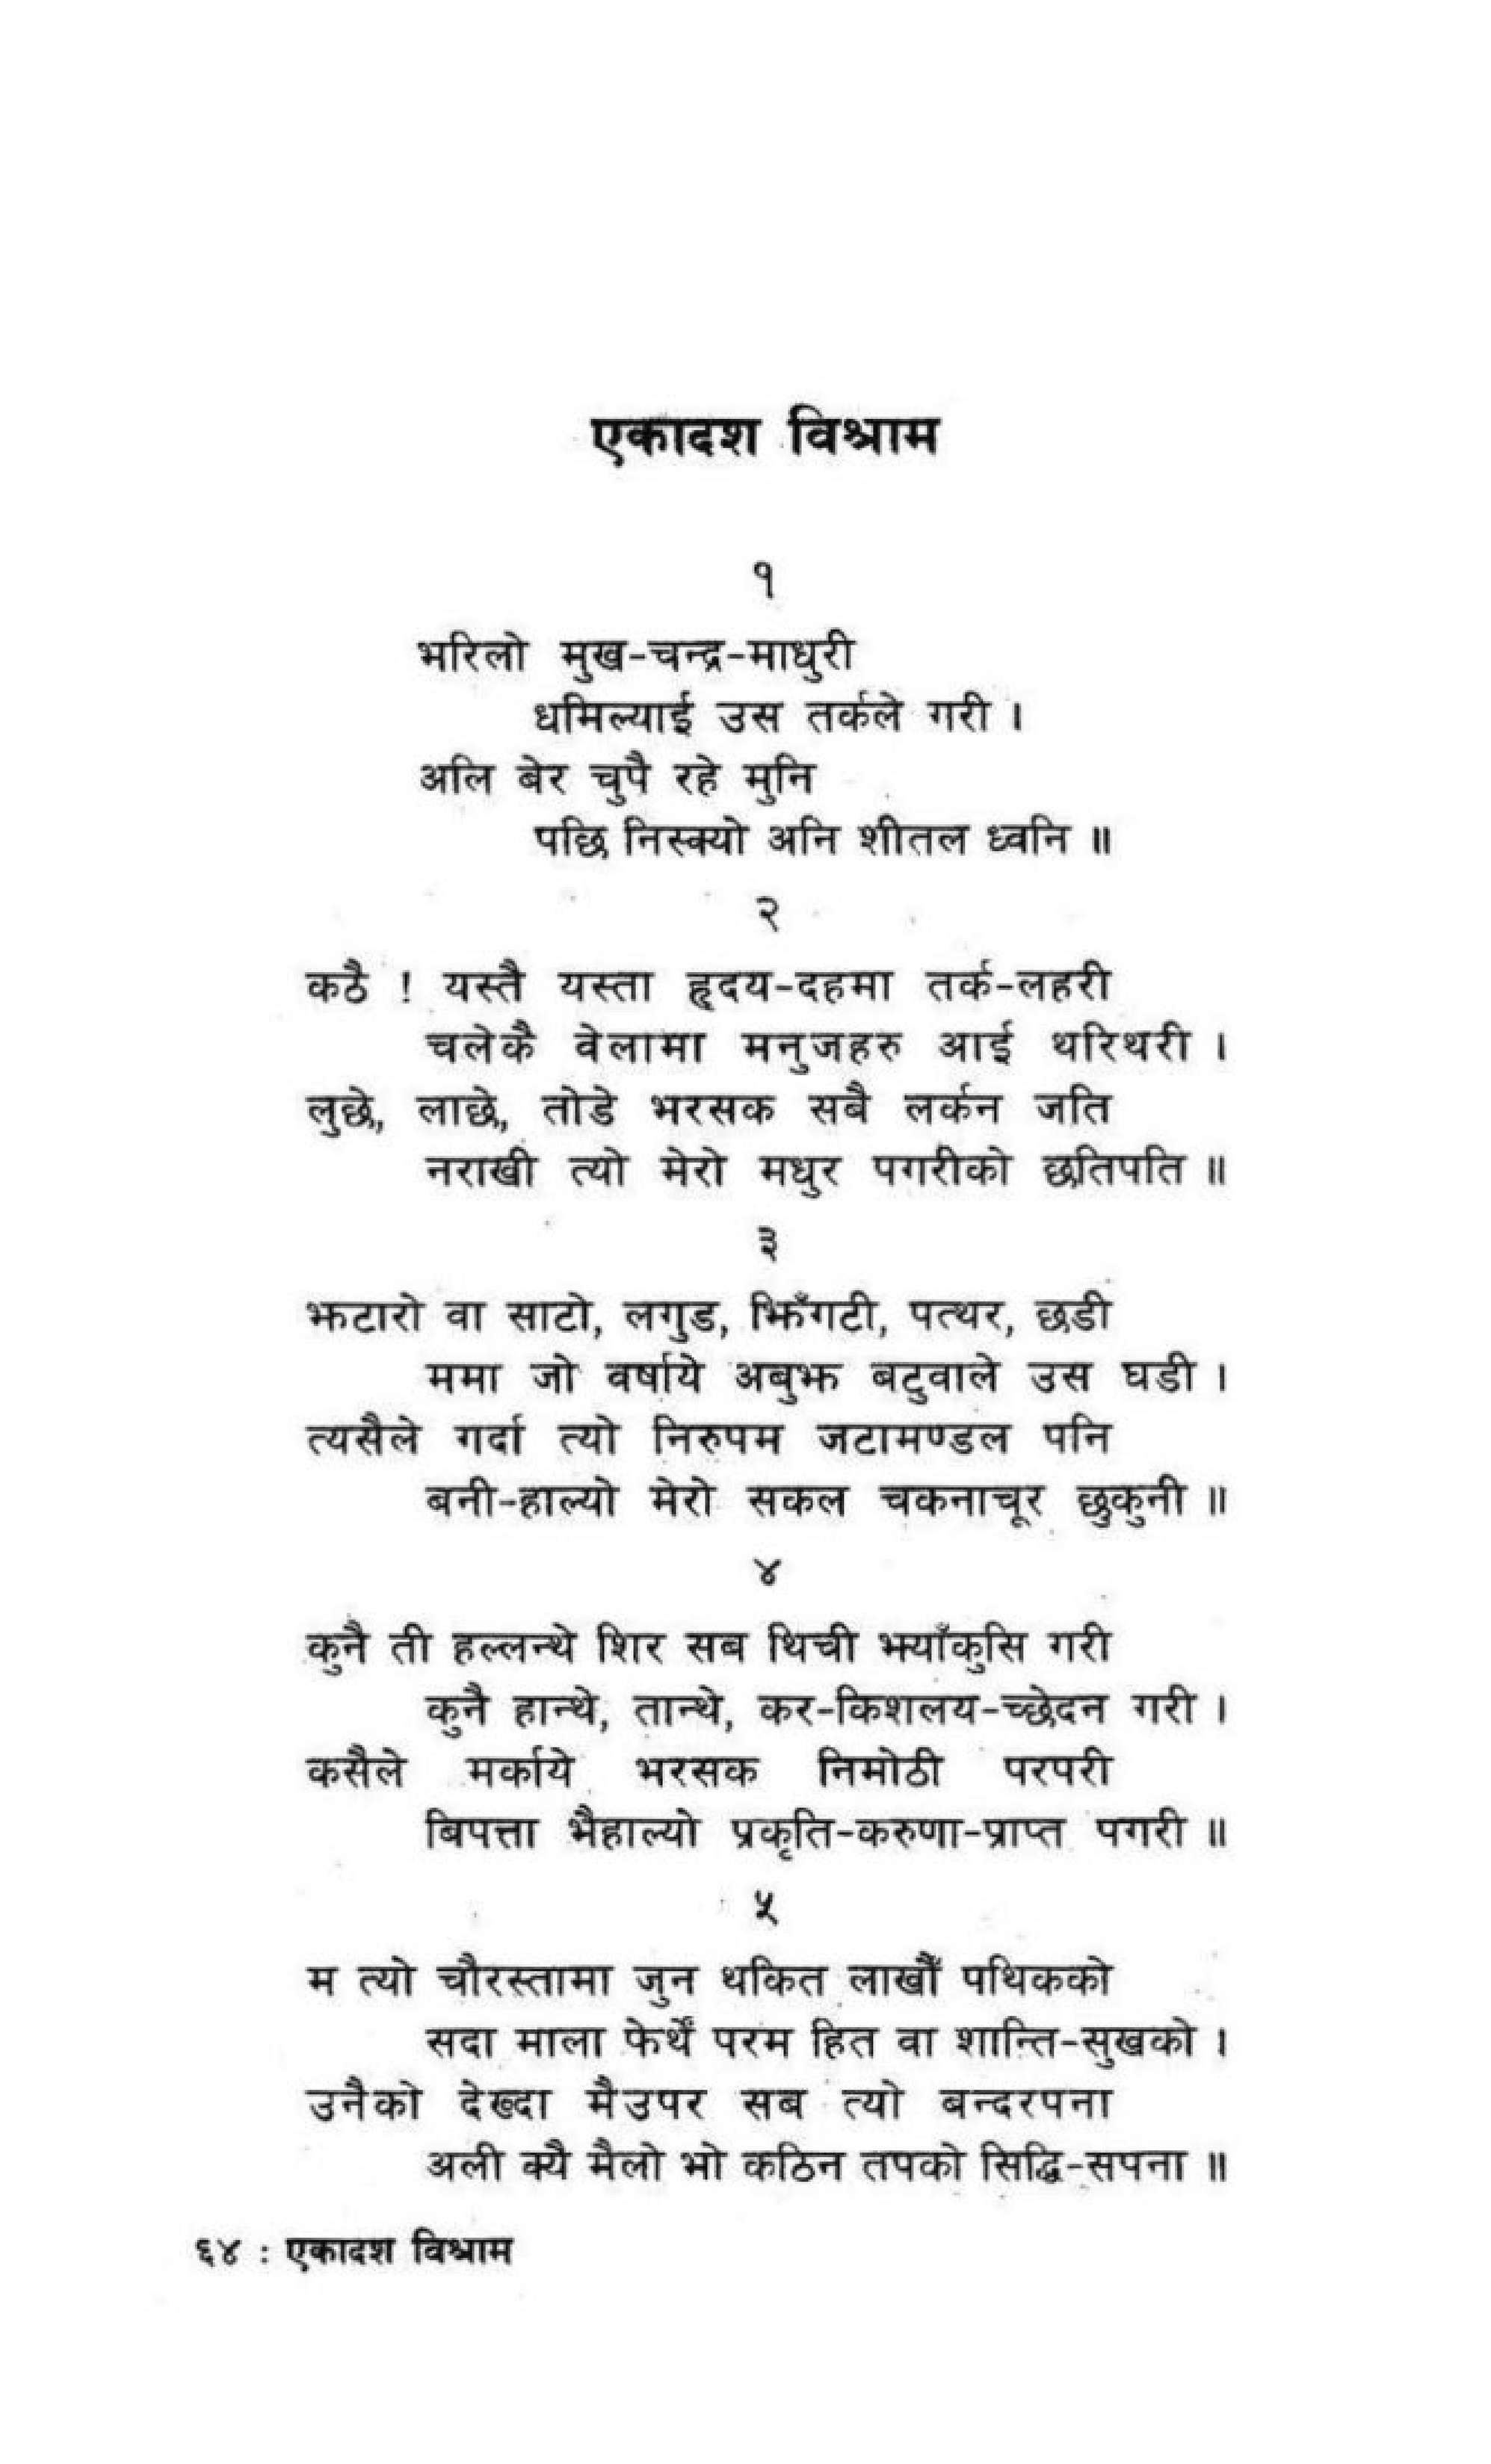 एकादश विश्राम
१
भरिलो मुख-चन्द्र-माधुरी
धमिल्याई उस तर्कले गरी ।
अलि बेर चुपै रहे मुनि
पछि निस्क्यो अनि शीतल ध्वनि ॥
२
कठै ! यस्तै यस्ता हृदय-दहमा तर्क-लहरी
चलेकै वेलामा मनुजहरु आई थरिथरी ।
लुछे, लाछे, तोडे भरसक सबै लर्कन जति
नराखी त्यो मेरो मधुर पगरीको छतिपति ॥
३
झटारो वा साटो, लगुड, झिँगटी, पत्थर, छडी
ममा जो वर्षाये अबुझ बटुवाले उस घडी ।
त्यसैले गर्दा त्यो निरुपम जटामण्डल पनि
बनी-हाल्यो मेरो सकल चकनाचूर छुकुनी ॥
४
कुनै ती हल्लन्थे शिर सब थिची झ्याँकुसि गरी
कुनै हान्थे, तान्थे, कर-किशलय-च्छेदन गरी ।
कसैले मर्काये भरसक निमोठी परपरी
बिपत्ता भैहाल्यो प्रकृति-करुणा-प्राप्त पगरी ॥
५
म त्यो चौरस्तामा जुन थकित लाखौँ पथिकको
सदा माला फेर्थें परम हित वा शान्ति-सुखको ।
उनैको देख्दा मैउपर सब त्यो बन्दरपना
अली क्यै मैलो भो कठिन तपको सिद्धि-सपना ॥
६४ : एकादश विश्राम